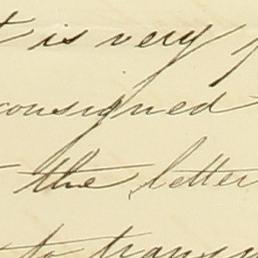 t is very
consigned
the letter
to